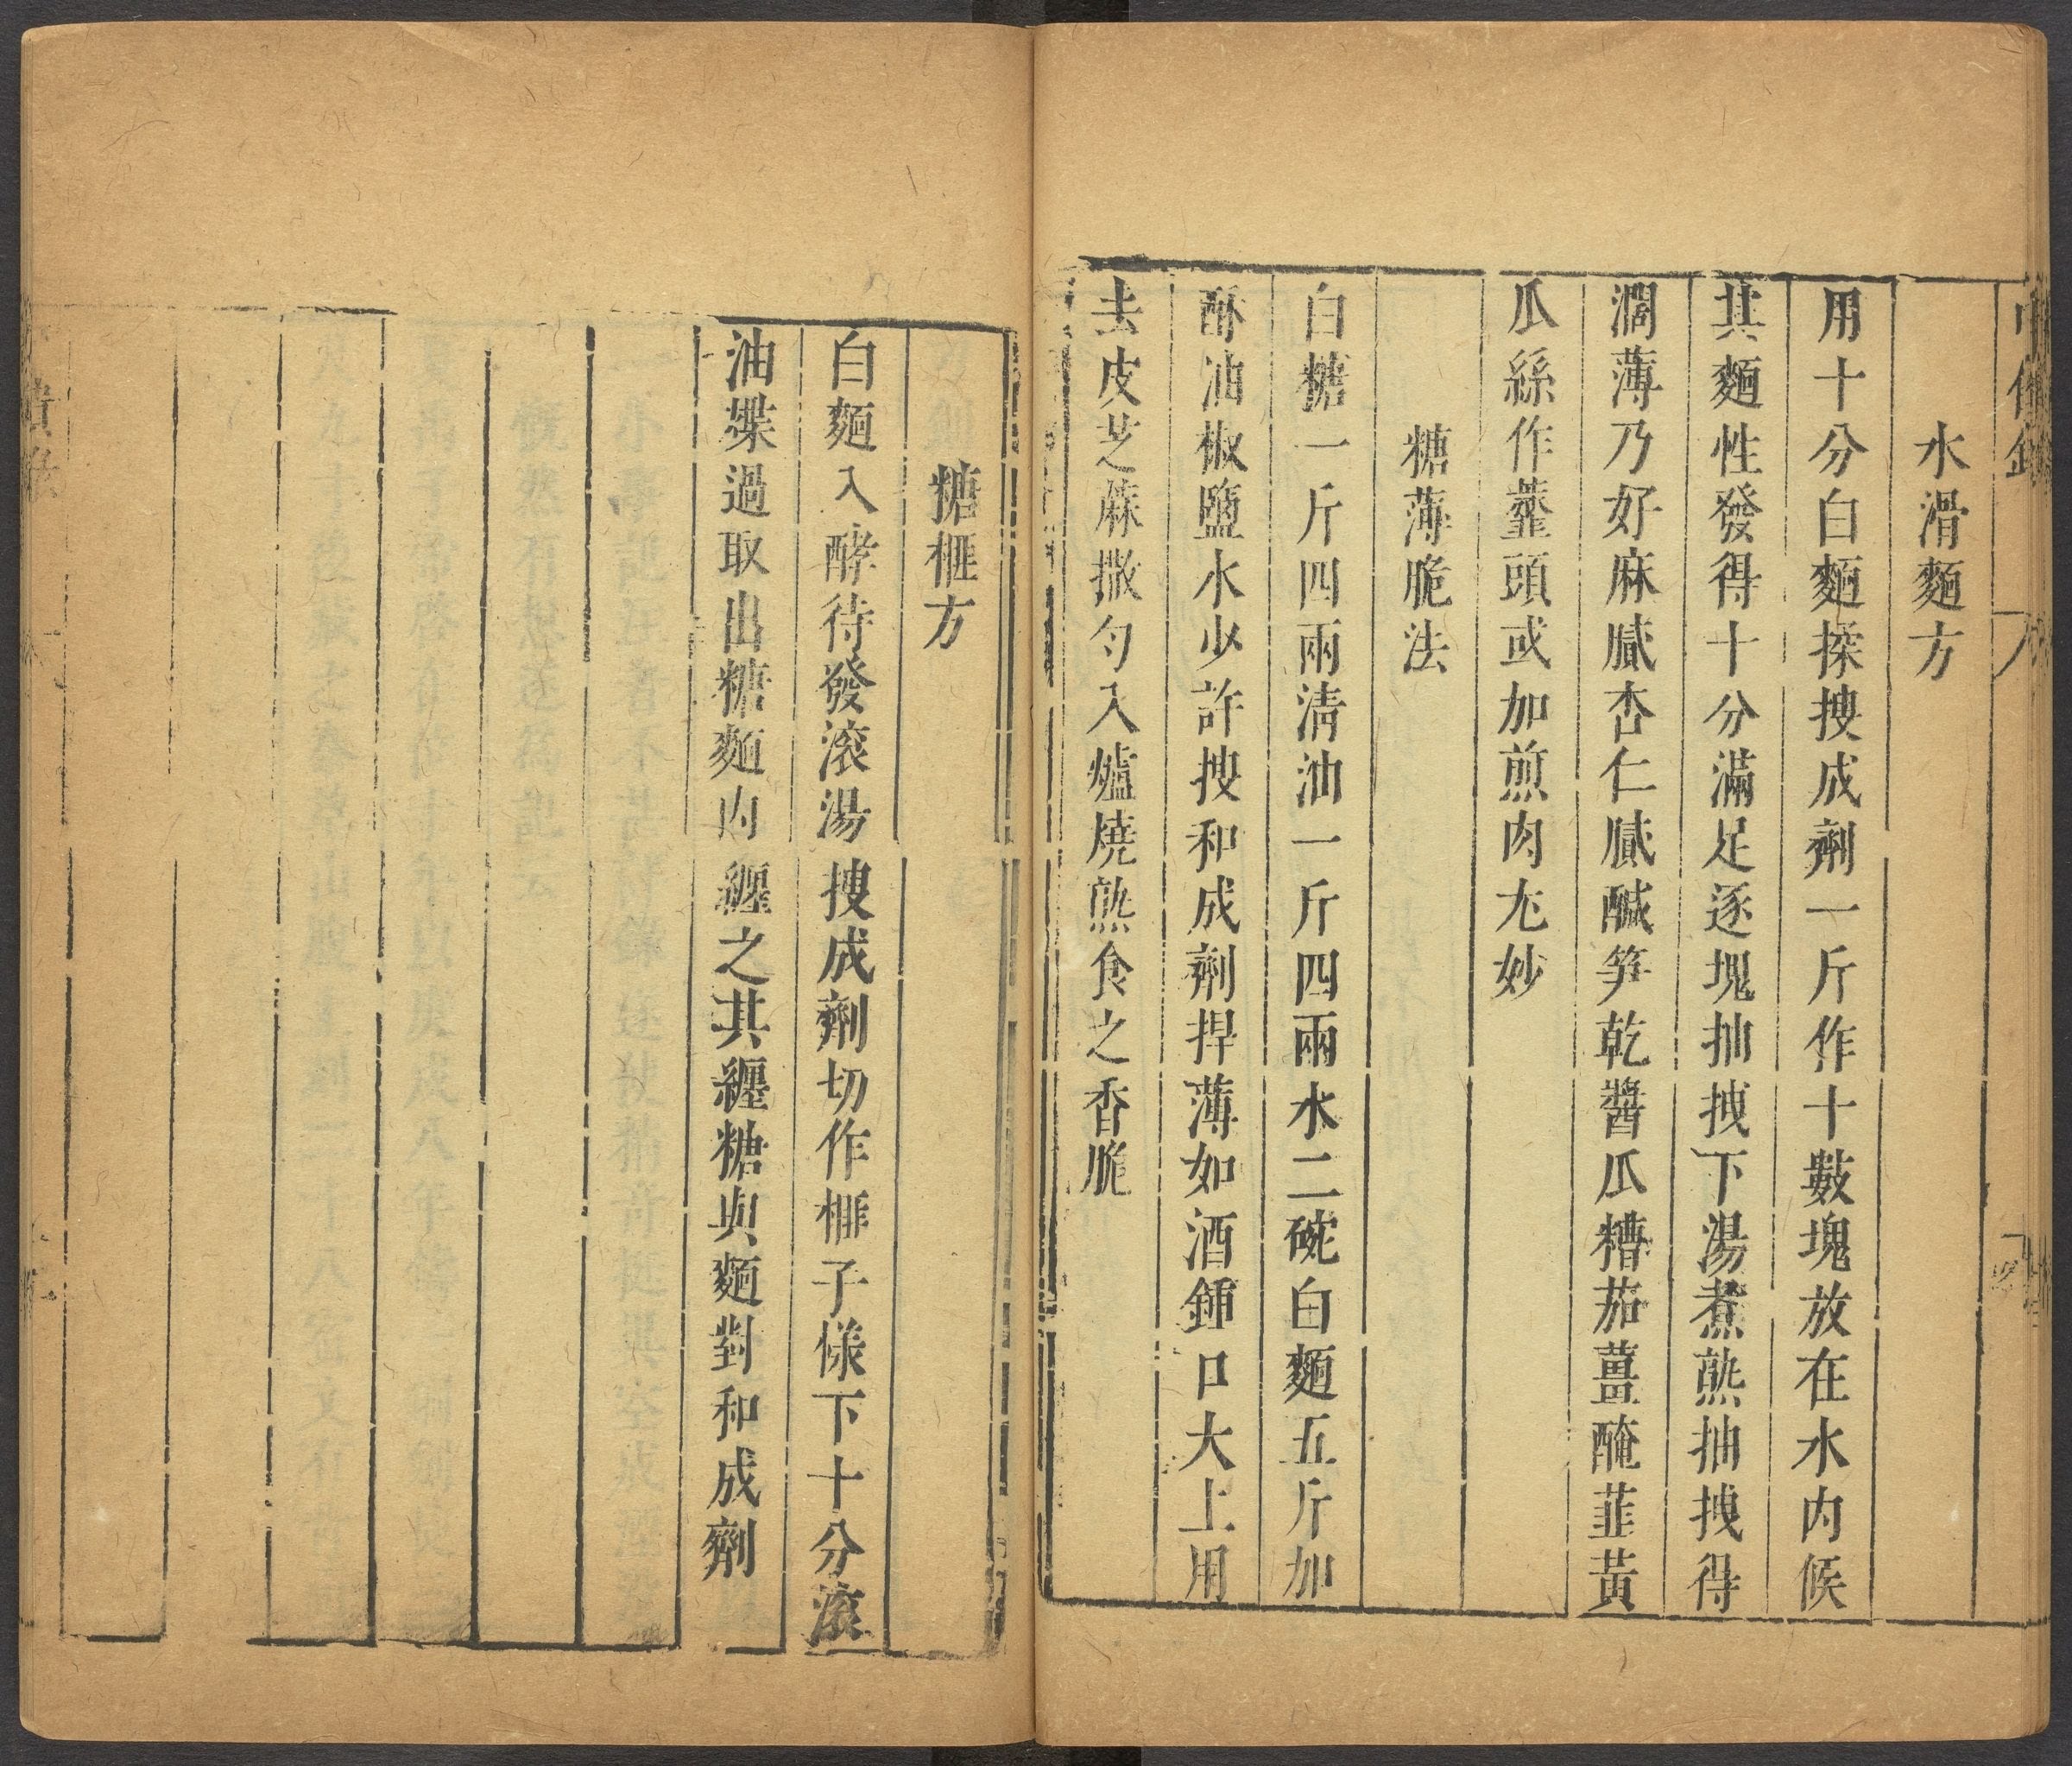 水滑麵方
用十分白麵揉搜成劑一斤作十數塊放在水内候
其麵性發得十分滿足逐塊抽拽下湯煮熟抽拽得
濶薄乃好麻膩杏仁膩鹹笋乾醬瓜糟茄薑醃韮黃
瓜絲作虀頭或加煎肉尤妙
糖薄脆法
白糖一斤四兩清油一斤四兩水二碗白麵五斤加
酥油椒鹽水少許搜和成劑捍薄如酒鍾口大上用
去皮芝蔴撒勻入爐燒熟食之香脆
糖榧方
白麵入酵待發滚湯搜成劑切作榧子樣下十分滚
油煠過取出糖麵内纏之其纏糖與麵對和成劑